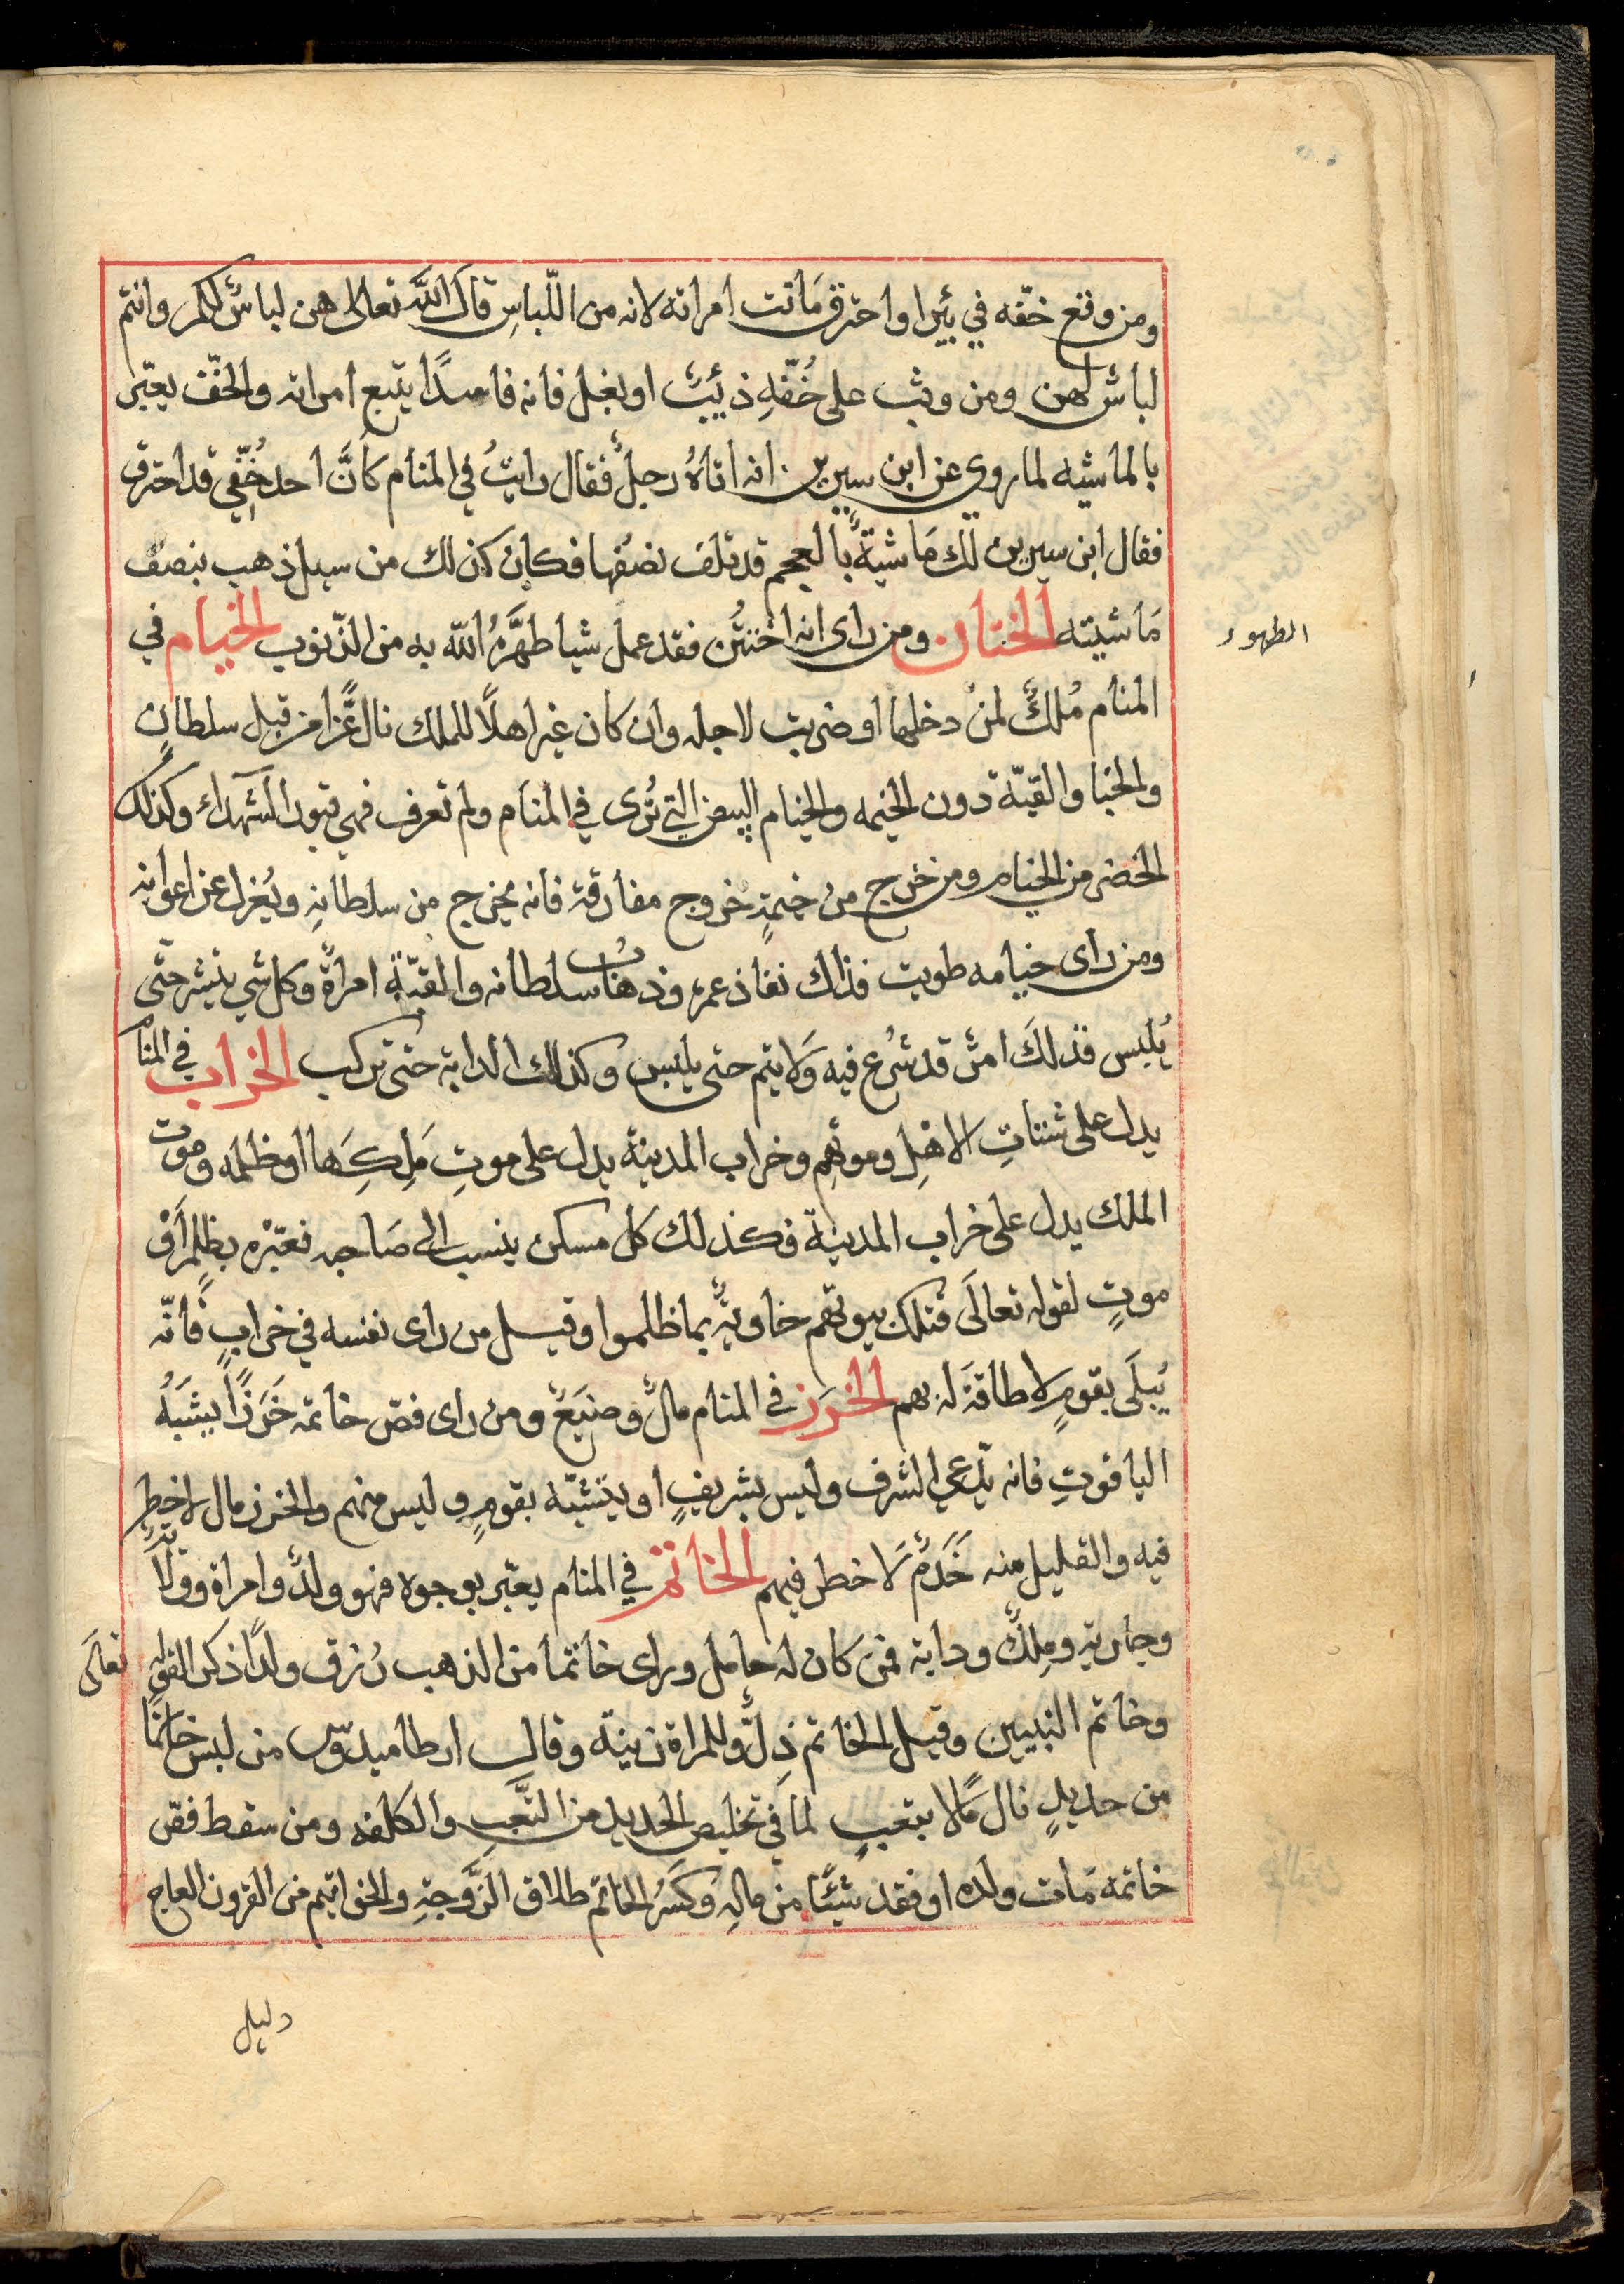 ومن وقع خفّه في بئيرا واحترق مَاتت امراته لانه من اللّباسِ قال اللّه تعالى هن لباسٌ لكم وانتم
لباسٌ لهن ومن وثب على خُفّهِ ذئبٌ او بغل فانه فاسدًا يتبع امراته والخفّ يعبّر
بالماشيه لما روي عن ابن سيرين انه اتاهُ رجلٌ فقال رايتُ في المنام كانَّ احد خُفّي قد احترق
فقال ابن سيرين لك مَاشيةٌ بالعجم قد تلف نصفُها فكان كذلك من سيل ذهب بنصف
مَاشيته الختان ومن راى انه اختتن فقد عمل شيا طهَّرهُ اللّه به من الذّنوب الخيام في
الطهور
المنام مُلكٌ لمن دخلها او ضربت لاجله وان كان غير اهلًا للملك نال عّزًا من قبل سلطانٍ
والخبا والقبّة دون الخيمه والخيام البيض التي تُرى في المنام ولم تعرف فهي قبور الشهداء وكذلك
الخضر من الخيام ومن خرج من خيمةٍ خروج مفارقة فانه يخرج من سلطانهِ ويُعزل عن اعوانه
ومن راى خيامه طويت فذاك نفاذ عمره وذهابُ سلطانه والقبّة امراةٌ وكل شي ينشر حتّى
يُلبس فذلكَ امرٌ قد شُرع فيه وَلا يتم حتى يلبس وكذلك الدابة حتى تركب الخراب في المنام
يدل على شتاتِ الاهْلِ وموتهم وخراب المدينة يدل على موتِ مَلِكِهَا او ظلمه وموت
الملك يدل على خراب المدينة وكذلك كل مسكن ينسب الى صَاحبه فعبّرْه بظلم اَوْ
موتٍ لقوله تعالَى فتلك بيوتهم خاويةٌ بما ظلموا وقيل من راى نفسه في خرابٍ فَانّه
يُبلَى بقومٍ لا طاقَة له بهم الخرَز في المنام مالٌ وضيَعٌ ومن راى فصّ خاتمه خَرَزًا يشبَهُ
الياقوتِ فانه يدّعي الشرف وليس بشريفٍ او يتشبّه بقومٍ وليس منهم والخرز مال لا خطر
فيه والقليل منه خَدَمٌ لَا خطر فيهم الخاتم في المنام يعبّر بوجوه فهو ولدٌ وامراة وولاَيةٌ
وجاريه ومِلكٌ ودابة فمن كان له حامل وراى خاتما من الذهب رُزق ولدًا ذكر القوله تعالَى
وخاتم النبيين وقيل الخاتم ذِلٌّ وللمراة زينة وقال ارطاميدوّس من لبس خاتمًا
من حديدٍ نال مَالا بتعبٍ لما في تخليص الحديد من التَّعبِ والكلفه ومن سقط فصّ
خاتمه مَات ولده او فقد شيئًا من مالِه وكَسْرُ الخاتم طلاق الزَّوجةِ والخواتيم من القرون العاج
دليل